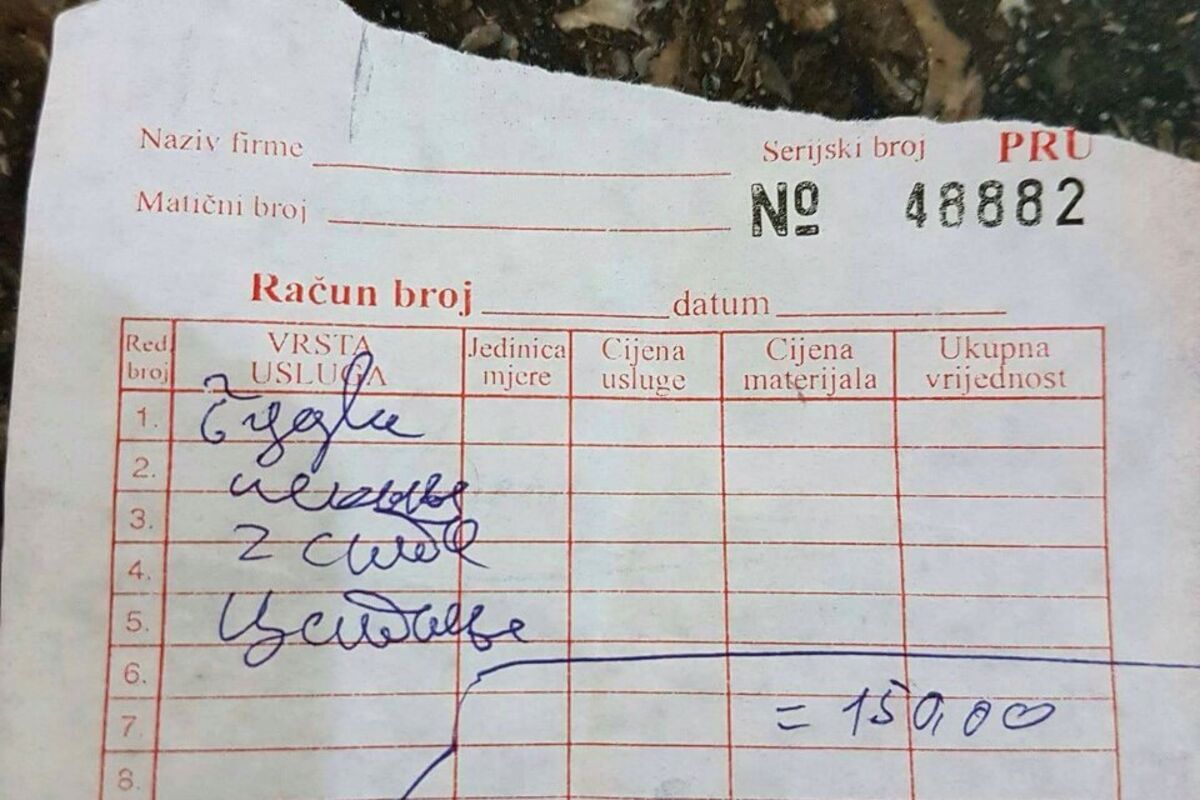 Naziv firme Serijski broj PRU
Matični broj № 48882
Račun broj datum
Red. broj VRSTA USLUGA Jedinica mjere Cijena usluge Cijena materijala Ukupna vrijednost
1.
2.
3. 2
4.
5.
6.
7. = 150,00
8.